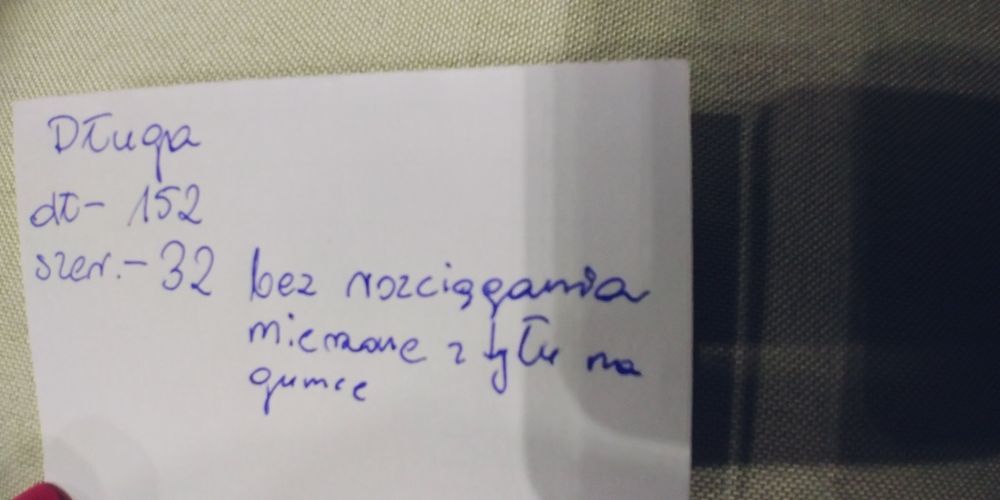 Długa
dł- 152
szer.- 32 bez rozciągania
mierzone z tyłu na
gumce